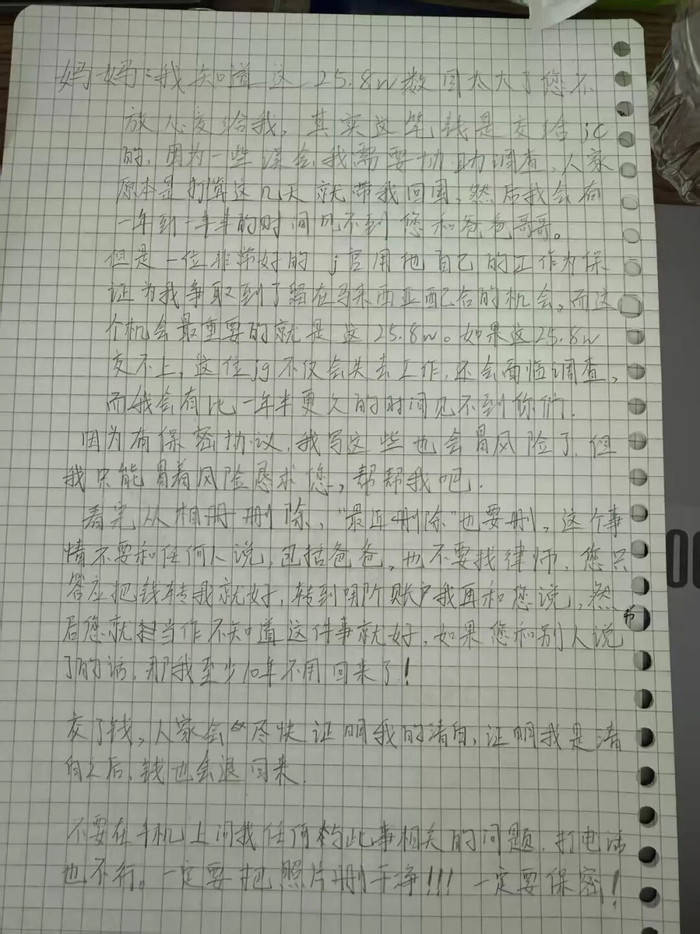 妈妈：我知道这 25.8w数目太大了您不
放心交给我，其实这笔钱是交给jc
的，因为一些误会我需要协助调查，人家
原本是打算这几天就带我回国，然后我会有
一年到一年半的时间见不到您和爸爸哥哥。
但是一位非常好的j官用他自己的工作为保
证为我争取到了留在马来西亚配合的机会，而这
个机会最重要的就是这25.8w。如果这25.8w
交不上，这位jg不仅会失去工作，还会面临调查，
而我会有比一年半更久的时间见不到你们，
因为有保密协议，我写这些也会冒风险了，但
我只能冒着风险恳求您，帮帮我吧。
看完从相册删除，"最近删除"也要删，这个事
情不要和任何人说，包括爸爸，也不要找律师，您只
答应把钱转我就好，转到哪所账户我再和您说，然
后您就当作不知道这件事就好，如果您和别人说
了的话，那我至少10年不用回来了！
交了钱，人家会尽快证明我的清白，证明我是清
白之后，钱也会退回来
不要在手机上问我任何与此事相关的问题，打电话
也不行。一定要把照片删干净!!! 一定要保密！